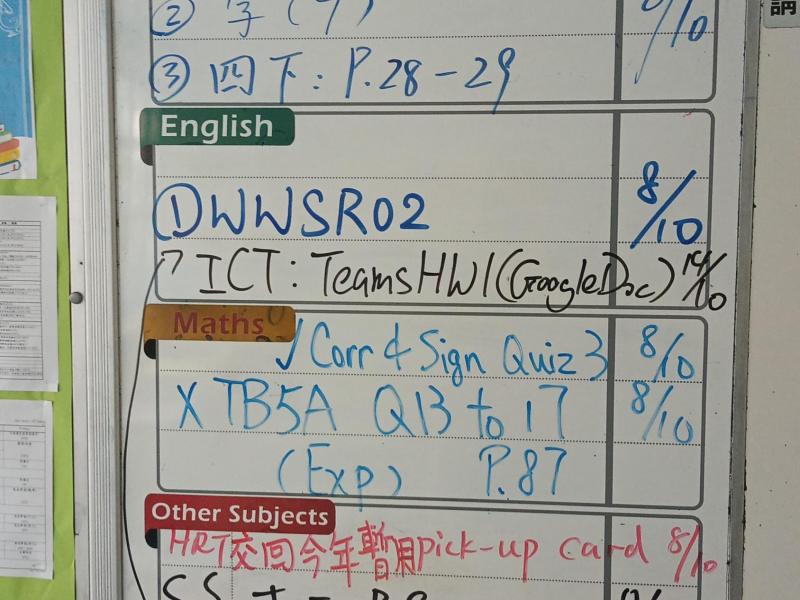 ② 字(7) 8/10
③ 四下: P.28-29
English
① DWWSR02 8/10
ICT: Teams HW1 (Google Doc) 14/10
Maths
✓ Corr & Sign Quiz 3 8/10
X TB5A Q13 to 17 8/10
(Exp) P.87
Other Subjects
HRT交回今年暫用pick-up card 8/10